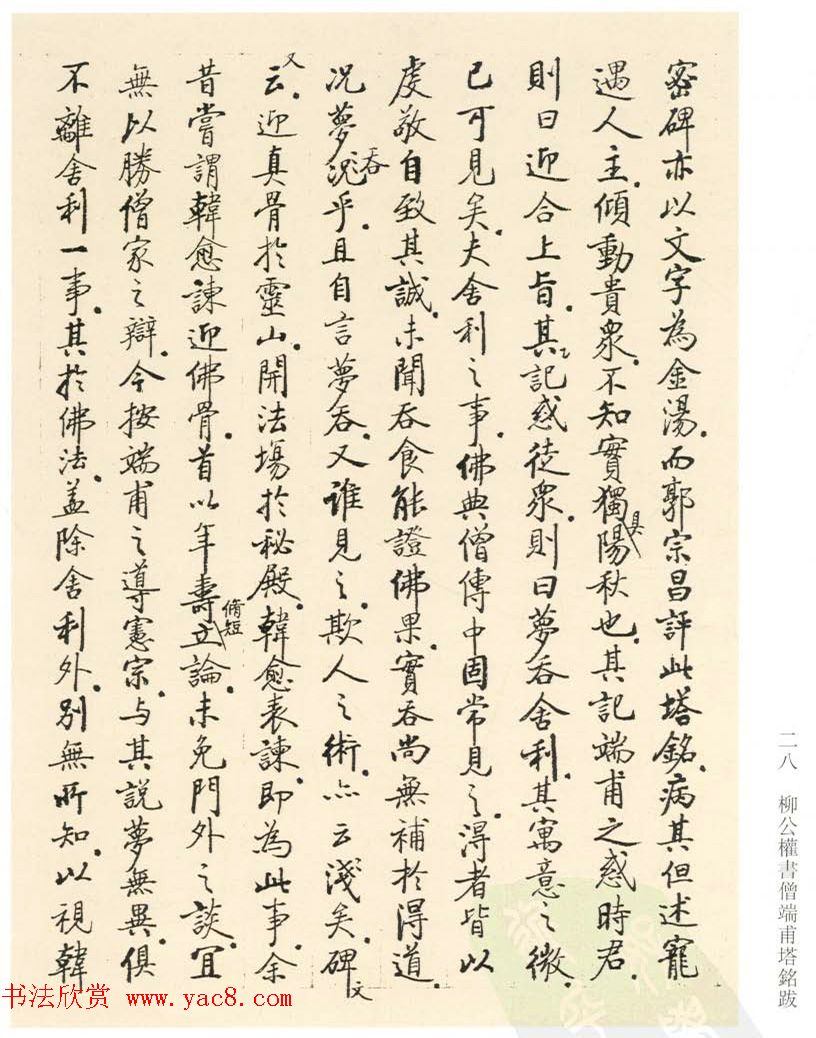 密碑亦以文字為金湯。而郭宗昌評此塔銘。病其但述寵
遇人主。傾動貴衆。不知實獨具陽秋也。其記端甫之惑時君。
則曰迎合上旨。其記惑徒衆。則曰夢吞舍利。其寓意之微。
已可見矣。夫舍利之事。佛典僧傳中固常見之。得者皆以
虔敬自致其誠。未聞吞食能證佛果。實吞尚無補於得道。
况夢吞乎。且自言夢吞。又誰見之。欺人之術。亦云淺矣。碑文
又云。迎真骨於靈山。開法場於秘殿。韓愈表諫。即為此事。余
昔嘗謂韓愈諫迎佛骨。首以年壽脩短立論。未免門外之談。宜
無以勝僧家之辯。今按端甫之導憲宗。与其說夢無異。俱
不離舍利一事。其於佛法。蓋除舍利外。別無所知。以視韓
二八 柳公權書僧端甫塔銘跋
书法欣赏 www.yac8.com